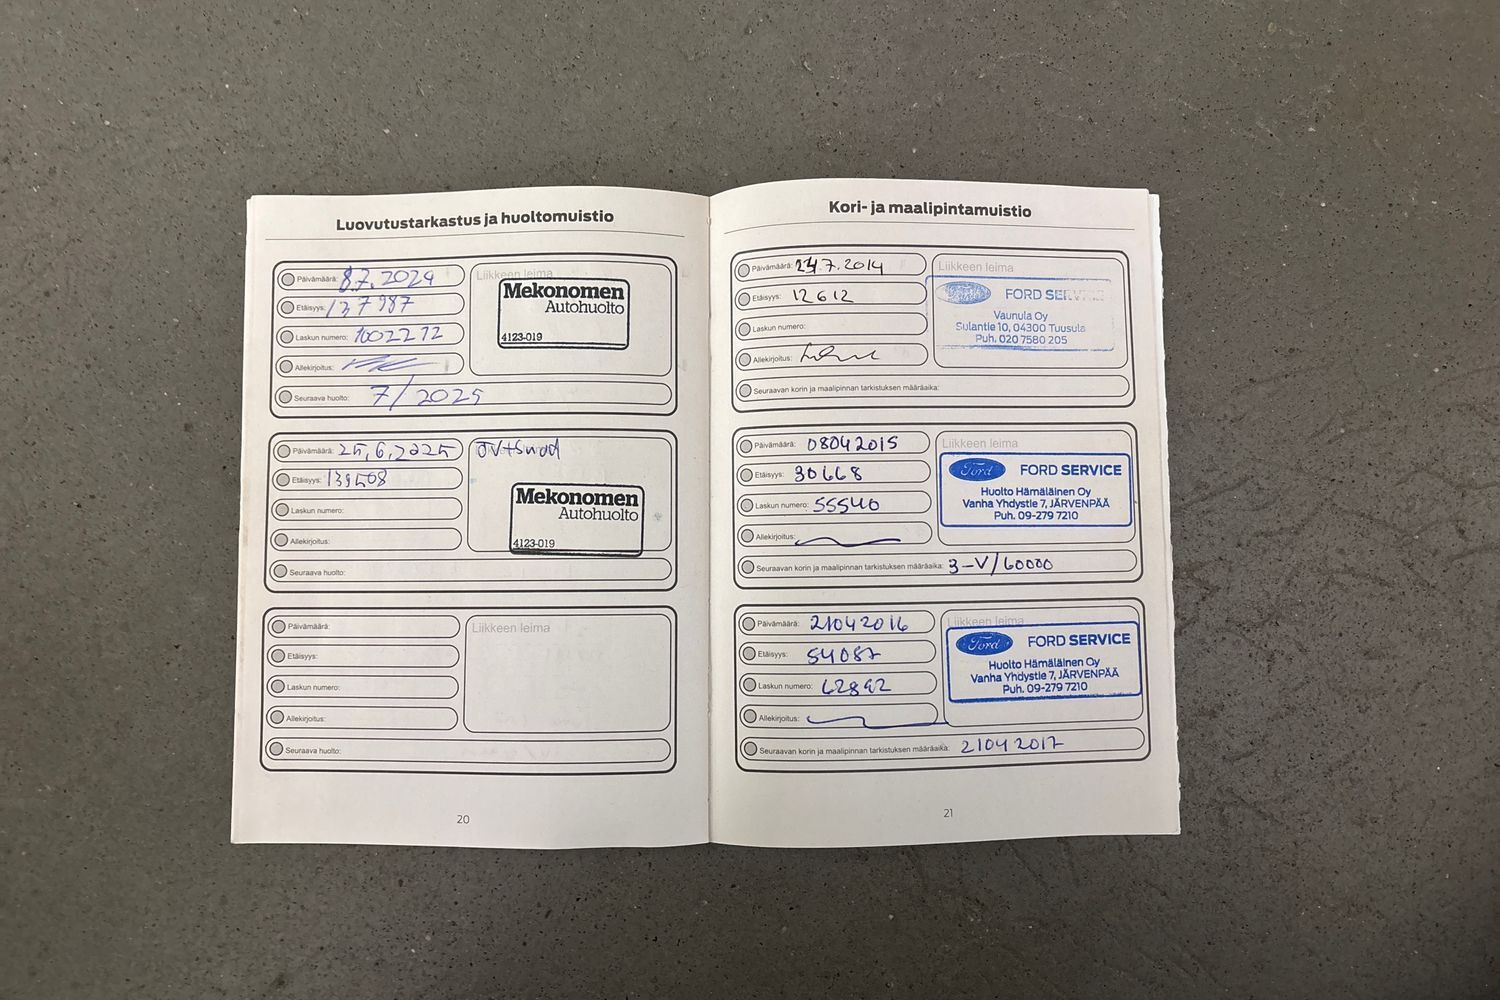 Luovutustarkastus ja huoltomuistio
Päivämäärä: 8.7.2024
Etäisyys: 137987
Laskun numero: 1002272
Allekirjoitus:
Seuraava huolto: 7/2025
Liikkeen leima
Mekonomen
Autohuolto
4123-019
Päivämäärä: 25.6.2025
Etäisyys: 139508
Laskun numero:
Allekirjoitus:
Seuraava huolto:
Mekonomen
Autohuolto
4123-019
Päivämäärä:
Etäisyys:
Laskun numero:
Allekirjoitus:
Seuraava huolto:
Liikkeen leima
20
Kori- ja maalipintamuistio
Päivämäärä: 24.7.2014
Etäisyys: 12612
Laskun numero:
Allekirjoitus:
Seuraavan korin ja maalipinnan tarkistuksen määräaika:
Liikkeen leima
Ford FORD SERVICE
Vaunula Oy
Sulantie 10, 04300 Tuusula
Puh. 020 7580 205
Päivämäärä: 08042015
Etäisyys: 30668
Laskun numero: 55540
Allekirjoitus:
Seuraavan korin ja maalipinnan tarkistuksen määräaika: 3-V/60000
Liikkeen leima
Ford FORD SERVICE
Huolto Hämäläinen Oy
Vanha Yhdystie 7, JÄRVENPÄÄ
Puh. 09-279 7210
Päivämäärä: 21042016
Etäisyys: 54087
Laskun numero: 62892
Allekirjoitus:
Seuraavan korin ja maalipinnan tarkistuksen määräaika: 21042017
Liikkeen leima
Ford FORD SERVICE
Huolto Hämäläinen Oy
Vanha Yhdystie 7, JÄRVENPÄÄ
Puh. 09-279 7210
21